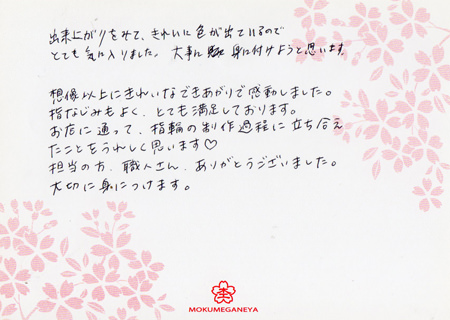 出来上がりをみて、きれいに色が出ているので
とても気に入りました。大事に身に付けようと思います。
想像以上にきれいなできあがりで感動しました。
指なじみもよく、とても満足しております。
お店に通って、指輪の制作過程に立ち合え
たことをうれしく思います♡
担当の方、職人さん、ありがとうございました。
大切に身につけます。
MOKUMEGANEYA